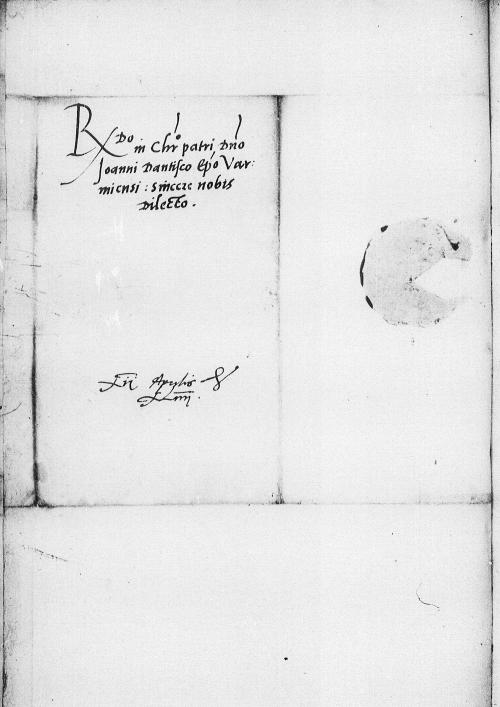 Rdo in Chro patri Dno
Joanni Dantisco Epo Var:
miensi: sincere nobis
Dilecto.
Aprilis